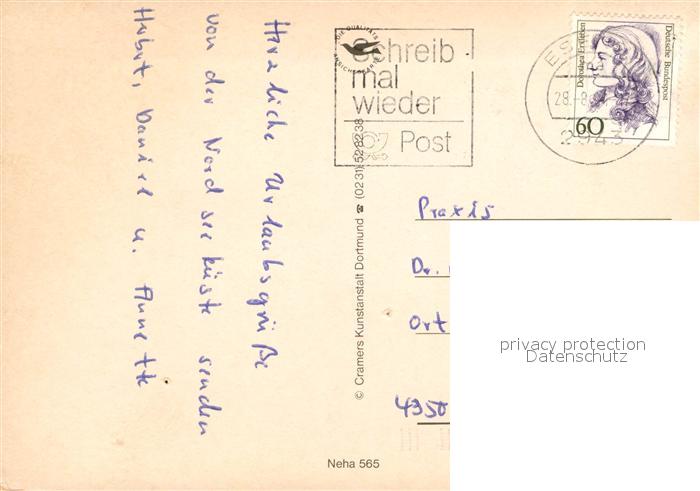 Herzliche Urlaubsgrüße
von der Nordseeküste senden
Hubert, Daniel u. Annette
DIE QUALITÄTS
ANSICHTSKARTE
Schreib
mal
wieder
Post
© Cramers Kunstanstalt Dortmund ☎ (02 31) 52 82 38
Neha 565
ES
28.-8
2943
Deutsche Bundespost
Dorothea Erxleben
60
Praxis
Dr.
Ort
4350
privacy protection
Datenschutz